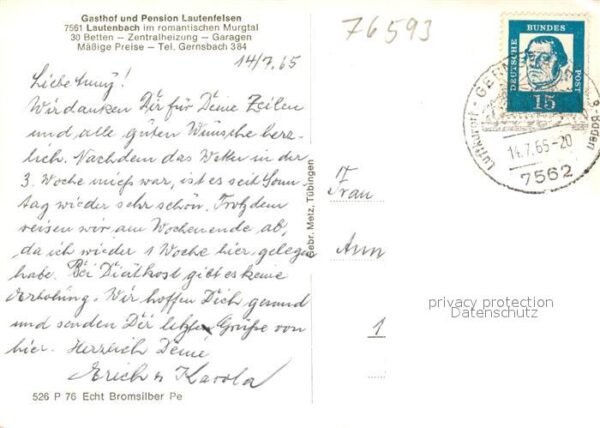 Gasthof und Pension Lautenfelsen
7561 Lautenbach im romantischen Murgtal
30 Betten – Zentralheizung – Garagen
Mäßige Preise – Tel. Gernsbach 384
76593
14/7.65
Liebe
Wir danken Dir für Deine Zeilen
und alle guten Wünsche herz-
lich. Nachdem das Wetter in der
3. Woche mies war, ist es seit Sonn-
tag wieder sehr schön. Trotzdem
reisen wir am Wochenende ab,
da ich wieder 1 Woche hier gelegen
habe. Bei Diätkost gibt es keine
Erholung. Wir hoffen Dich gesund
und senden Dir letzte Grüße von
hier. Herzlich Deine
Erich u Karola
526 P 76 Echt Bromsilber Pe
Gebr. Metz, Tübingen
Frau
Ann
1
DEUTSCHE BUNDES POST
15
Luftkurort
14.7.65-20
7562
privacy protection
Datenschutz